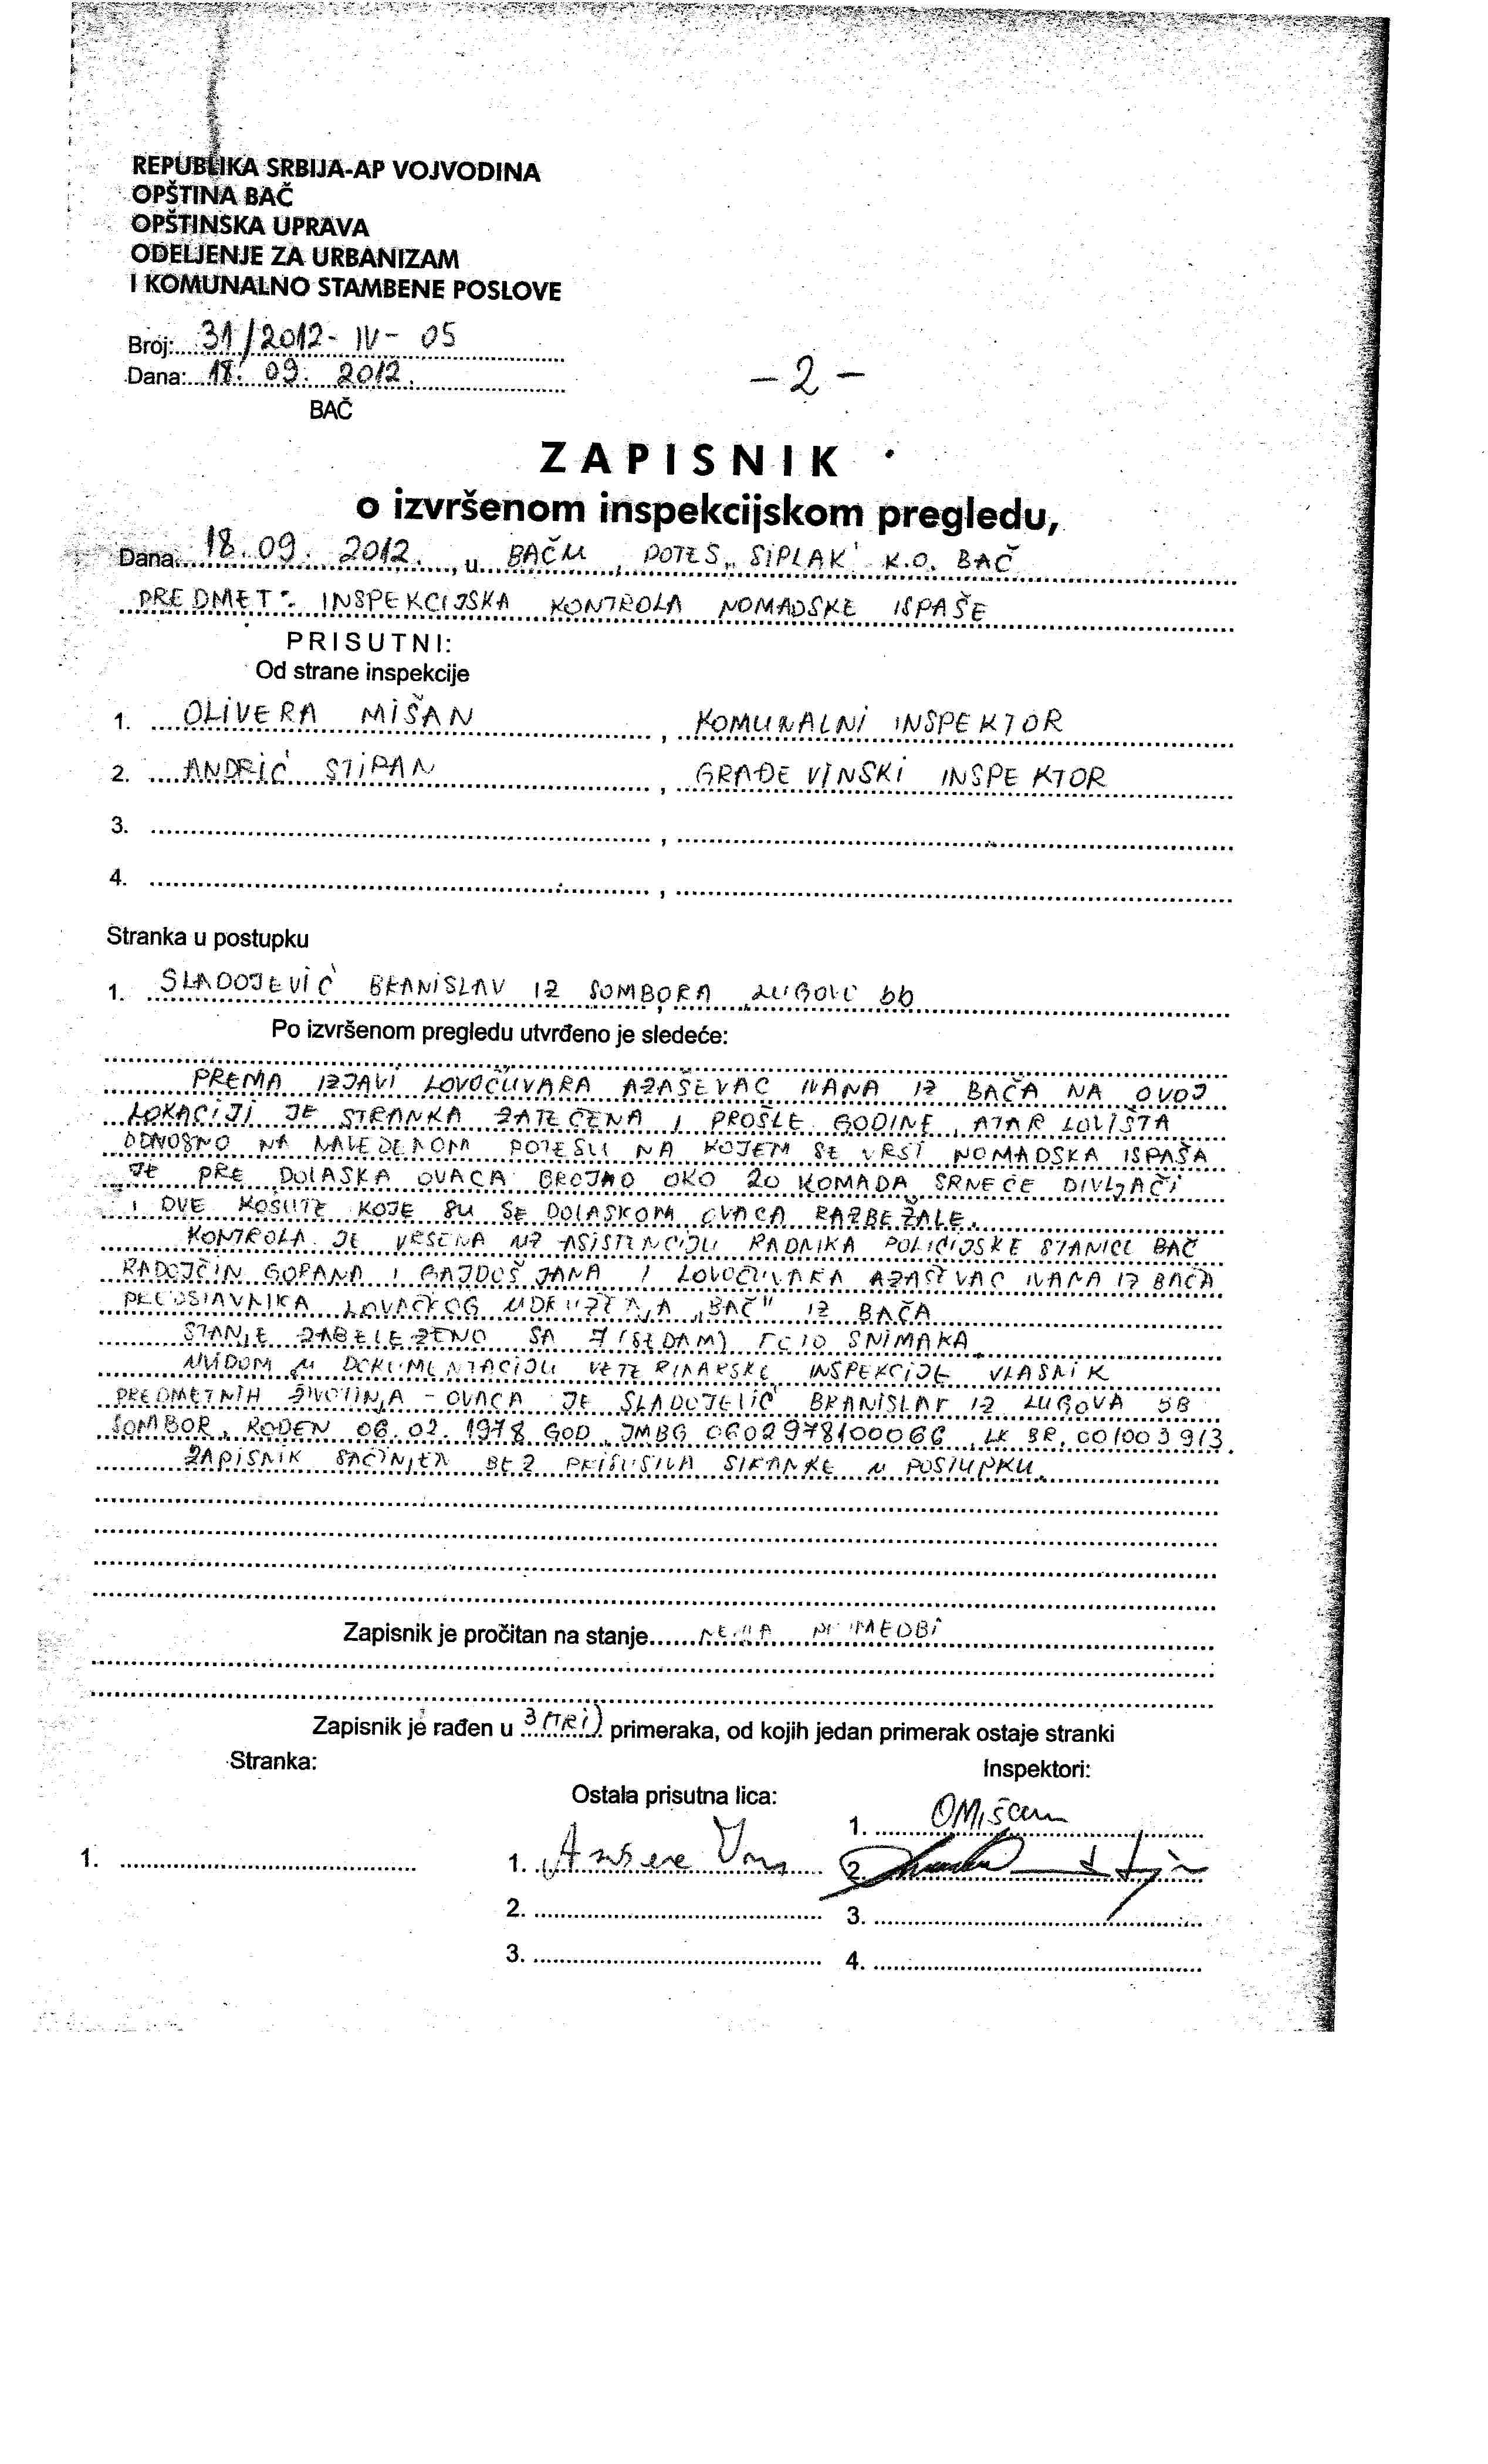 REPUBLIKA SRBIJA-AP VOJVODINA
OPŠTINA BAČ
OPŠTINSKA UPRAVA
ODELJENJE ZA URBANIZAM
I KOMUNALNO STAMBENE POSLOVE
Broj: 31/2012-IV-05
Dana: 18. 09. 2012.
BAČ
-2-
ZAPISNIK
o izvršenom inspekcijskom pregledu,
Dana 18.09. 2012. , u BAČU , POTES „SIPLAK" K.O. BAČ
PREDMET: INSPEKCIJSKA KONTROLA NOMADSKE ISPAŠE
PRISUTNI:
Od strane inspekcije
1. OLIVERA MIŠAN , KOMUNALNI INSPEKTOR
2. ANDRIĆ STIPAN , GRAĐEVINSKI INSPEKTOR
3. ,
4. ,
Stranka u postupku
1. SLADOJEVIĆ BRANISLAV IZ SOMBORA, LUGOVO bb
Po izvršenom pregledu utvrđeno je sledeće:
PREMA IZJAVI LOVOČUVARA AZAŠEVAC IVANA IZ BAČA NA OVOJ
LOKACIJI JE STRANKA ZATEČENA I PROŠLE GODINE, ATAR LOVIŠTA
ODNOSNO NA NAVEDENOM POTESU NA KOJEM SE VRŠI NOMADSKA ISPAŠA
JE PRE DOLASKA OVACA BROJAO OKO 20 KOMADA SRNEĆE DIVLJAČI
I DVE KOŠUTE KOJE SU SE DOLASKOM OVACA RAZBEŽALE.
KONTROLA JE VRŠENA UZ ASISTENCIJU RADNIKA POLICIJSKE STANICE BAČ
RADOJČIN GORANA I GAJDOŠ JANA I LOVOČUVARA AZAŠEVAC IVANA IZ BAČA
PREDSTAVNIKA LOVAČKOG UDRUŽENJA „BAČ" IZ BAČA
STANJE ZABELEŽENO SA 7 (SEDAM) FOTO SNIMAKA.
UVIDOM U DOKUMENTACIJU VETERINARSKE INSPEKCIJE VLASNIK
PREDMETNIH ŽIVOTINJA - OVACA JE SLADOJEVIĆ BRANISLAV IZ LUGOVA BB
SOMBOR, ROĐEN 06.02.1978 GOD, JMBG 0602978100066, LK BR. 001003913.
ZAPISNIK SAČINJEN BEZ PRISUSTVA STRANKE U POSTUPKU.
Zapisnik je pročitan na stanje NEMA PRIMEDBI
Zapisnik je rađen u 3 (TRI) primeraka, od kojih jedan primerak ostaje stranki
Stranka:
Inspektori:
Ostala prisutna lica:
1. OMišan
1.
1.
2.
2.
3.
3.
4.